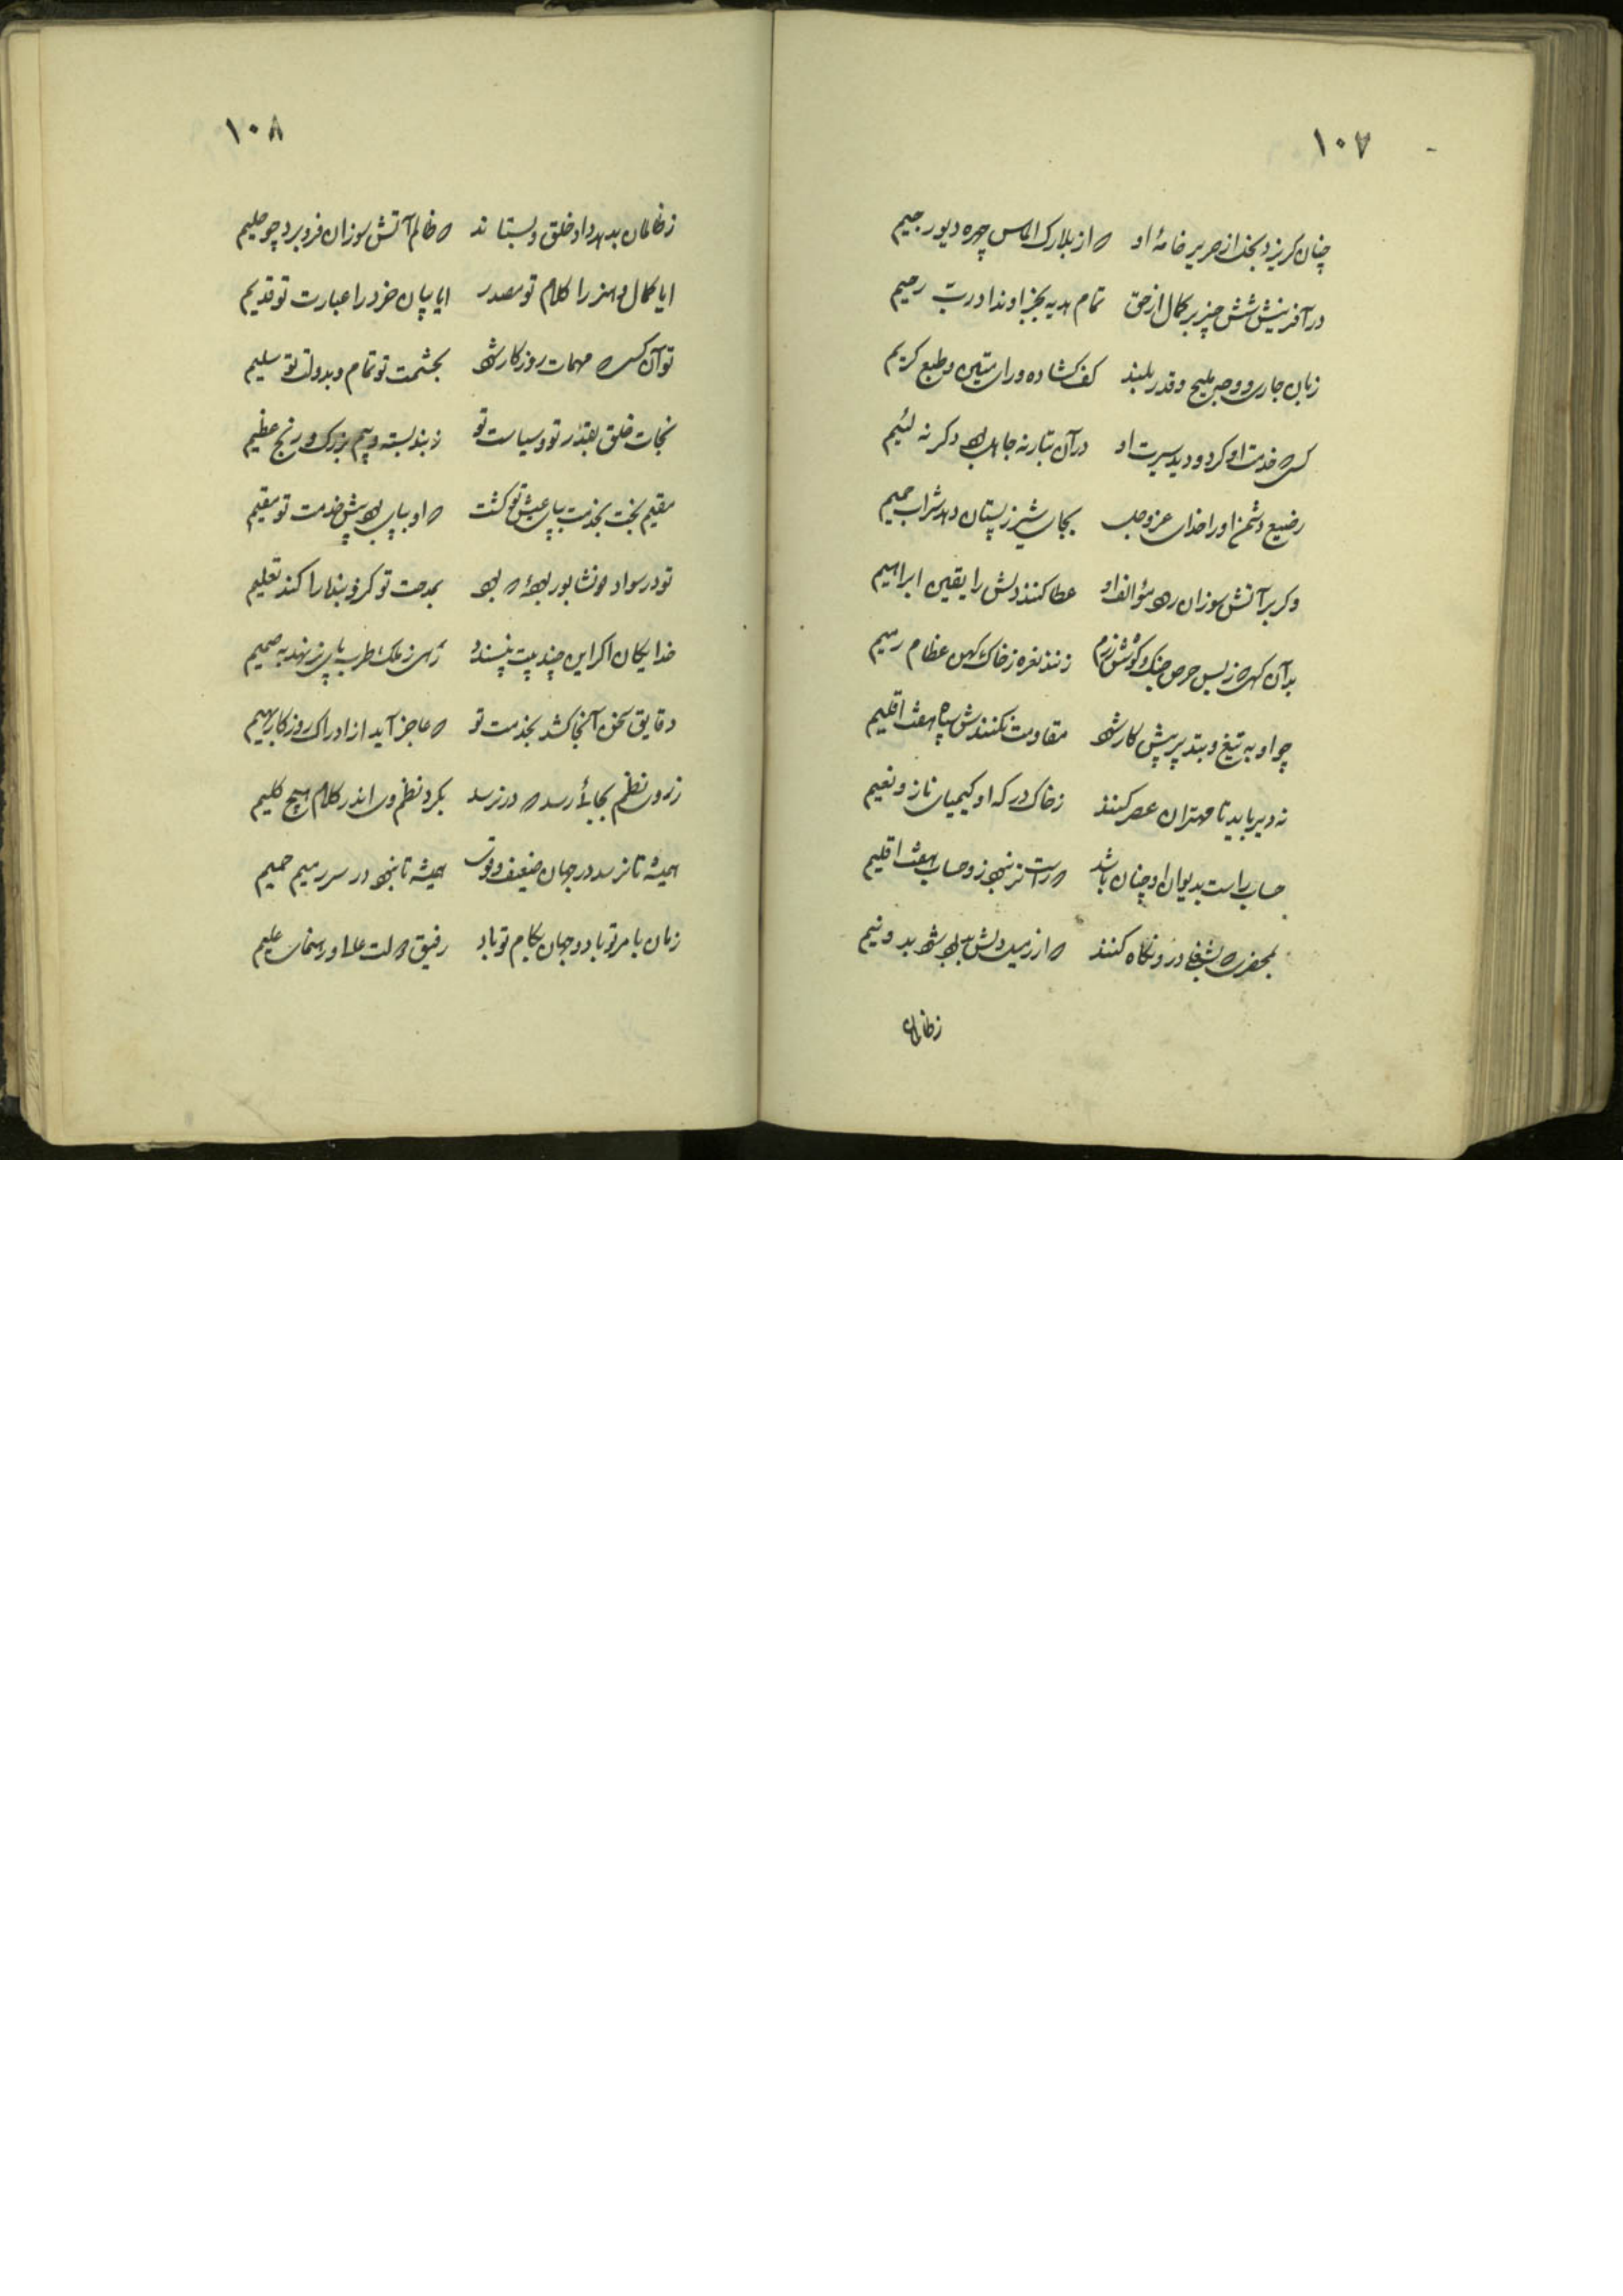 ۱۰۷
چنان گریزد بخل از صریر خامهٔ او که از بلارک الماس چهره دیو رجیم
در آفرینش شش چیز بر کمال از حق تمام هدیه بجز او نداد رب رحیم
زبان جاری و وجه ملیح و قدر بلند کف گشاده و رای متین و طبع کریم
کسی که خدمت او کرد و دید سیرت او در آن تبار نه جاهل بود دگر نه لئیم
رضیع دشمن او را خدای عز و جل بجای شیر ز پستان دهد شراب حمیم
وگر بر آتش سوزان رود مؤالف او عطا کنند دلش را یقین ابراهیم
بدان گهی که ز بس حرص جنگ و کوشش رزم زنند نعره ز خاک کهن عظام رمیم
چو او به تیغ و بتدبیر پیش کار شود مقاومت نکنندش سپاه هفت اقلیم
نه دیر باید تا مهتران عصر کنند ز خاک درگه او کیمیای ناز و نعیم
حساب راست بدیوان او چنان باشد که راست تر نبود زو حساب هفت اقلیم
بمجمره که بشفا در و نگاه کنند که از رمیدلش بود شود بدو نیم
ز ظالمان
۱۰۸
ز ظالمان بدهد داد خلق و بستاند که ظالم آتش سوزان فرو برد چو ظلیم
ایا کمال و هنر را کلام تو مصدر ایا بیان خرد را عبارت تو قدیم
تو آن کسی که مهمات روزگار شود بحشمت تو تمام و بدولت تو سلیم
نجات خلق بقدر تو و سیاست تو ز بند بسته و بیم بزرگ و رنج عظیم
مقیم بخت بخدمت بپای عیش تو گشت که او بپای بود پیش خدمت تو مقیم
تو در سواد نشابور بودهٔ که بود بمدحت تو کز و بنده را کند تعلیم
خدایگان اگر این چند بیت بپسندد رهی ز ملک طرب پای بر نهد به صمیم
دقایق سخن آنجا کشد بخدمت تو که عاجز آید از ادراک روزگار بهیم
ز روی نظم بجائی رسد که در نرسد بگرد نظم وی اندر کلام هیچ کلیم
همیشه تا نرسد در جهان ضعیف و قوی همیشه تا نبود در سر رمیم حمیم
زمان بامر تو باد و جهان بکام تو باد رفیق دولت عالی و رهنمای علیم